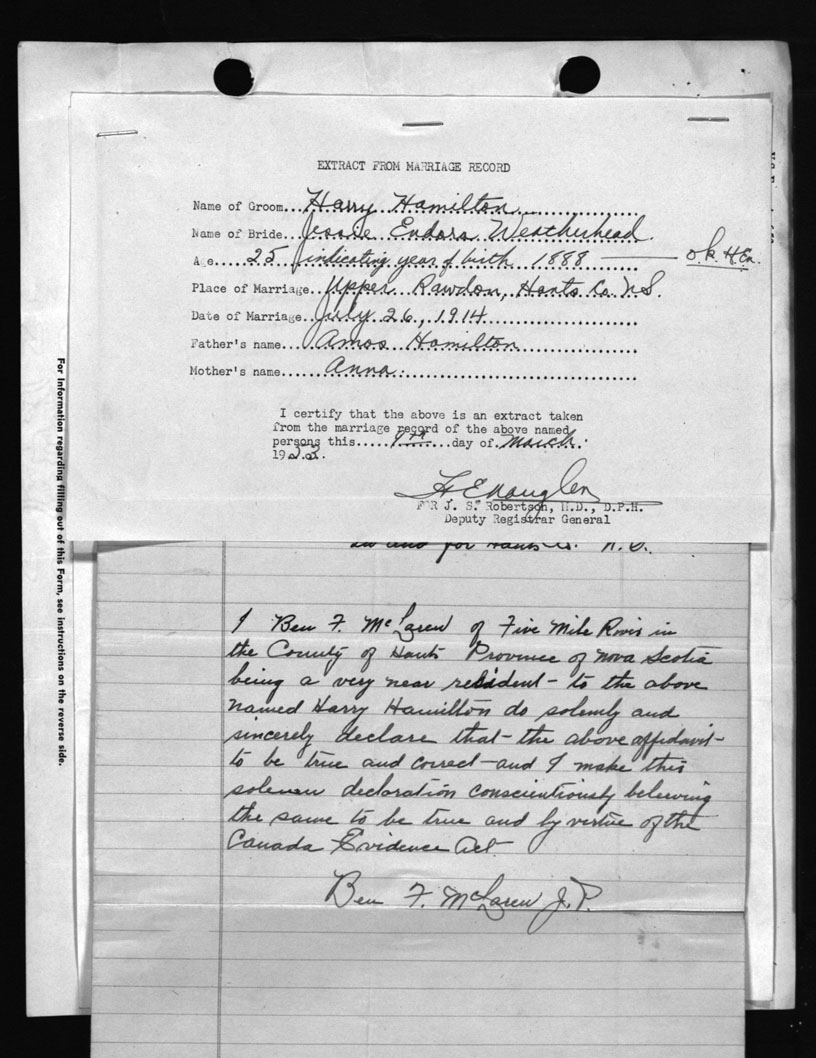 EXTRACT FROM MARRIAGE RECORD
Name of Groom...Harry Hamilton
Name of Bride...Jessie Endora Weatherhead
Age.....25 indicating year of birth 1888 — O.K. H.En.
Place of Marriage...Upper Rawdon, Hants Co. N.S.
Date of Marriage...July 26, 1914
Father's name...Amos Hamilton
Mother's name......Anna
I certify that the above is an extract taken
from the marriage record of the above named
persons this.....9th...day of March.
1953.
FOR J. S. Robertson, M.D., D.P.H.
Deputy Registrar General
in and for Hants Co. N.S.
I Ben F. McLaren of Five Mile River in
the County of Hants Province of Nova Scotia
being a very near resident - to the above
named Harry Hamilton do solemly and
sincerely declare that - the above affidavit -
to be true and correct - and I make this
solemn declaration conscientiously believing
the same to be true and by vertue of the
Canada Evidence Act
Ben F. McLaren J.P.
For information regarding filling out of this Form, see instructions on the reverse side.